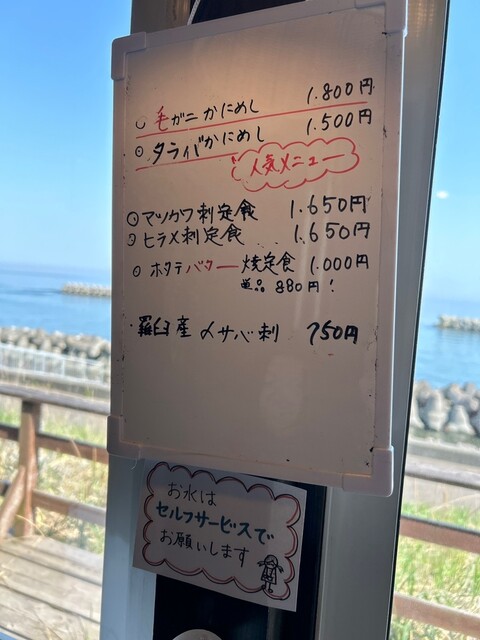 ○ 毛ガニかにめし 1.800円
◎ タラバかにめし 1.500円
人気メニュー
◎ マツカワ刺定食 1.650円
◎ ヒラメ刺定食... 1.650円
◎ ホタテバター焼定食 1.000円
単品 880円!
・羅臼産〆サバ刺 750円
お水は
セルフサービスで
お願いします